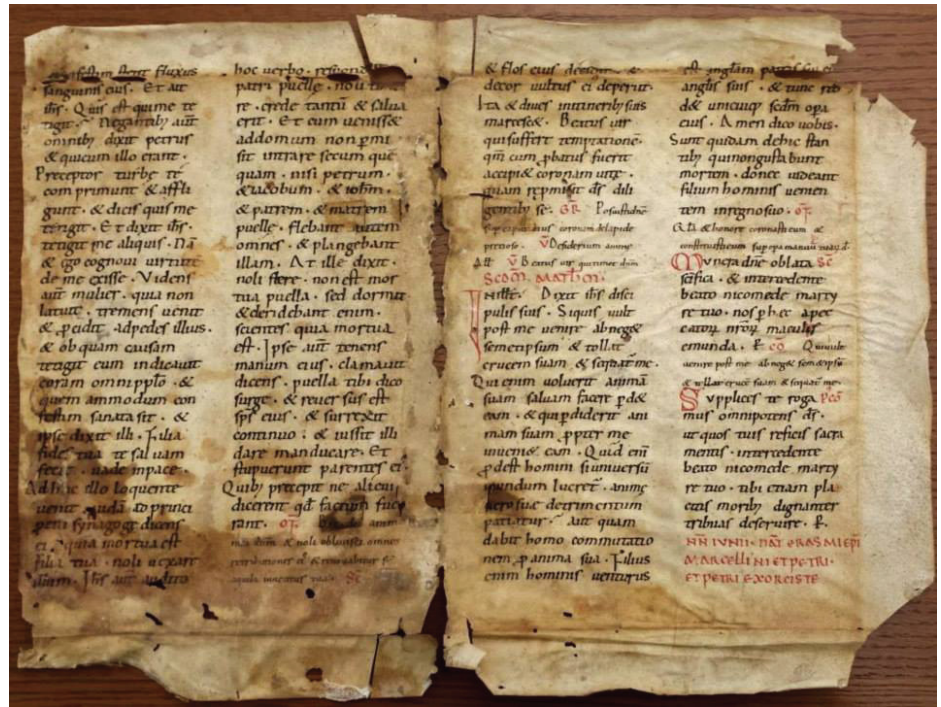 festim stetit fluxus
sanguinis eius. Et ait
ihs. Quis est qui me te
tigit. Negantib; aut
omnib; dixit petrus
& qui cum illo erant.
Preceptor turbę te
comprimunt & affli
gunt. & dicis quis me
tetigit. Et dixit ihs.
tetigit me aliquis. Nā
& ego cognoui uirtutē
de me exisse. Videns
aut mulier. quia non
latuit. tremens uenit
& pcidit adpedes illius.
& ob quam causam
tetigit eum indicauit
coram omni pplo. &
quem ammodum con
festim sanata sit. &
ipse dixit illi. Filia
fides tua te saluam
fecit. uade inpace.
Adhuc illo loquente
uenit quidā ad princi
pem synagogę dicens
ei. quia mortua est
filia tua. noli uexare
illum. Ihs aut audito
hoc uerbo.
patri puellę. noli time
re. crede tantū & salua
erit. Et cum uenisset
addomum non pmi
sit intrare secum quē
quam. nisi petrum.
& iacobum. & iohm.
& patrem. & matrem
puellę. flebant autem
omnes. & plangebant
illam. At ille dixit.
noli flere. non est mor
tua puella. sed dormit
& deridebant eum.
scientes quia mortua
est. Ipse aut tenens
manum eius. clamauit
dicens. puella tibi dico
surge. & reuersus est
sps eius. & surrexit
continuo. & iussit illi
dare manducare. Et
stupuerunt parentes ei.
Quib; precepit ne alicui
dicerent qd factum fue
rant. oF. anim
mea dnm. & noli obliuisci omnes
retributiones ei & renouabitur s
aquila iuuentus tua.
& flos eius decidit &
decor uultus ei deperiit.
Ita & diues initinerib; suis
marcescet. Beatus uir
qui suffert temptationē.
qm cum pbatus fuerit
accipiet coronam uitę.
quam repmisit ds dili
gentib; se. GR Posuisti dnē
super caput eius coronam delapide
pretioso. V Desiderium animę
All V Beatus uir qui timet dnm
Scdm. Mathm.
Inillt. Dixit ihs disci
pulis suis. Siquis uult
post me uenire abneget
semetipsum & tollat
crucem suam & sequat me.
Qui enim uoluerit animā
suam saluam facere pdet
eam. & qui pdiderit ani
mam suam ppter me
inueniet eam. Quid enī
pdest homini si uniuersū
mundum lucret. animę
uero suę detrimentum
patiatur. aut quam
dabit homo commutatio
nem p anima sua. Filius
enim hominis uenturus
est ingłam patris sui cū
angłis suis. & tunc red
det unicuiq; scdm opa
eius. Amen dico uobis.
Sunt quidam dehic stan
tib; qui non gustabunt
mortem. donec uideant
filium hominis uenien
tem inregno suo. oF.
Gła & honore coronasti eum &
constituisti eum sup opa manuū tuarū d
Muncra dnē oblata sc
scīfica. & intercedente
beato nicomede marty
re tuo. nos p hęc apec
catorū nrorū maculis
emunda. P. co Qui uult
uenire post me abneget semetipsū
& tollat crucē suam & sequat me.
Supplices te roga pco
mus omnipotens ds.
ut quos tuis reficis sacra
mentis. intercedente
beato nicomede marty
re tuo. tibi etiam pla
citis morib; dignanter
tribuas deseruire. P.
NN IVNII. NAT ERASMI EPI
MARCELLINI ET PETRI.
ET PETRI EXORCISTE